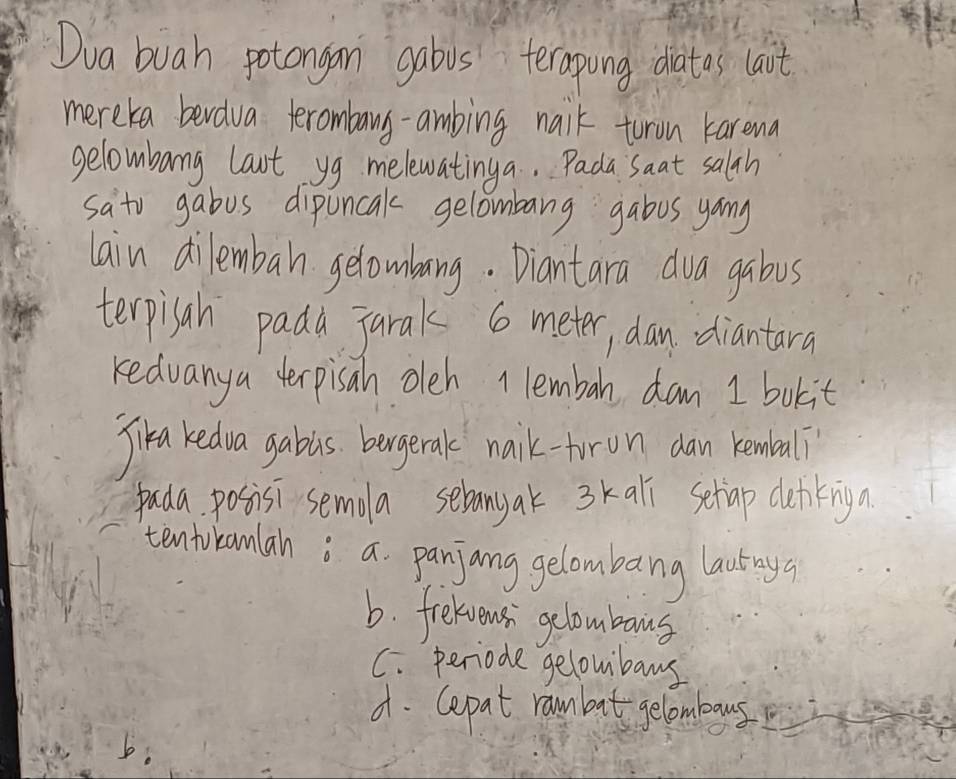 Dua buah potongan gabus terapung diatas laut
mereka berdua terombang-ambing naik turun karena
gelombang laut yg melewatinya. Pada saat salah
satu gabus dipuncak gelombang gabus yang
lain dilembah gelombang. Diantara dua gabus
terpisah pada jarak 6 meter, dan diantara
keduanya terpisah oleh 1 lembah dan 1 bukit
jika kedua gabus bergerak naik-turun dan kembali
pada posisi semula sebanyak 3 kali setiap detiknya.
tentukanlah : a. panjang gelombang lautnya
b. frekuensi gelombang
c. periode gelombang
d. cepat rambat gelombang
b.